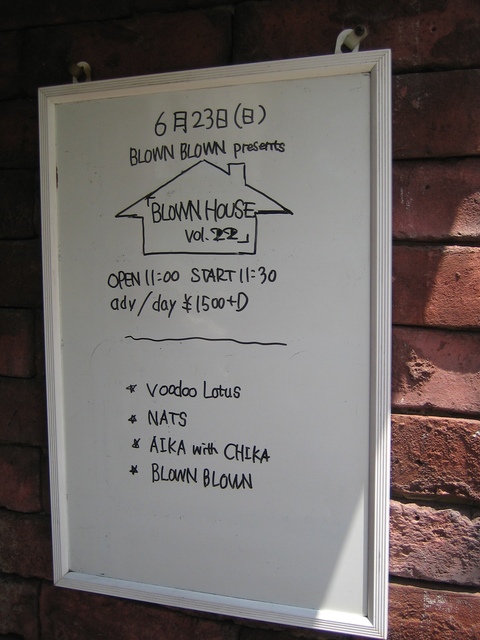 6月23日(日)
BLOWN BLOWN presents
「BLOWN HOUSE
vol.22」
OPEN 11:00 START 11:30
adv/day ¥1500+D
* Voodoo Lotus
* NATS
* AIKA with CHIKA
* BLOWN BLOWN